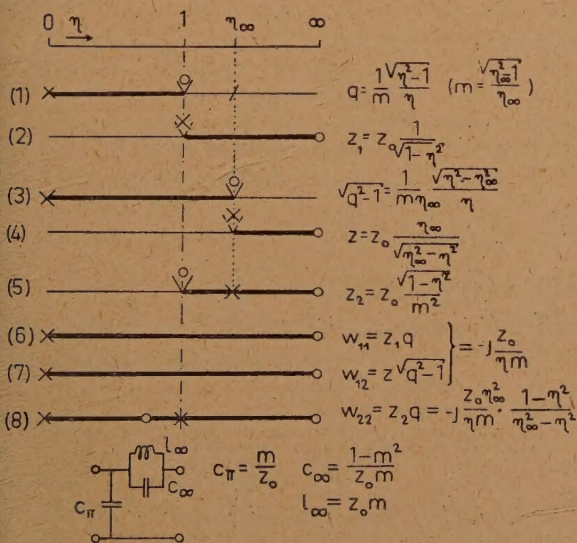 0 η 1 η∞ ∞
(1) q = 1/m √(η²-1)/η (m = √(η∞²-1)/η∞)
(2) z₁ = z₀ 1/√(1-η²)
(3) √(q²-1) = 1/(mη∞) √(η²-η∞²)/η
(4) z = z₀ η∞/√(η∞²-η²)
(5) z₂ = z₀ √(1-η²)/m²
(6) w₁₁ = z₁q
(7) w₁₂ = z√(q²-1) } = -j z₀/(ηm)
(8) w₂₂ = z₂q = -j z₀η∞²/(ηm) · (1-η²)/(η∞²-η²)
l∞
C∞
Cπ
Cπ = m/z₀ C∞ = (1-m²)/(z₀m)
l∞ = z₀m